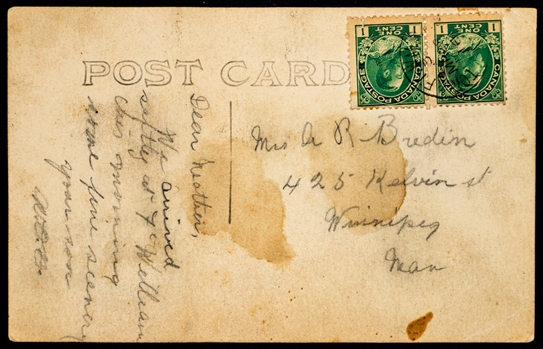 POST CARD
Dear Mother,
We arrived
safely at Ft William
this morning
some fine scenery
your son
Mrs A R Bredin
425 Kelvin st
Winnipeg
Man
1 ONE CENT 1
CANADA POSTAGE
1 ONE CENT 1
CANADA POSTAGE